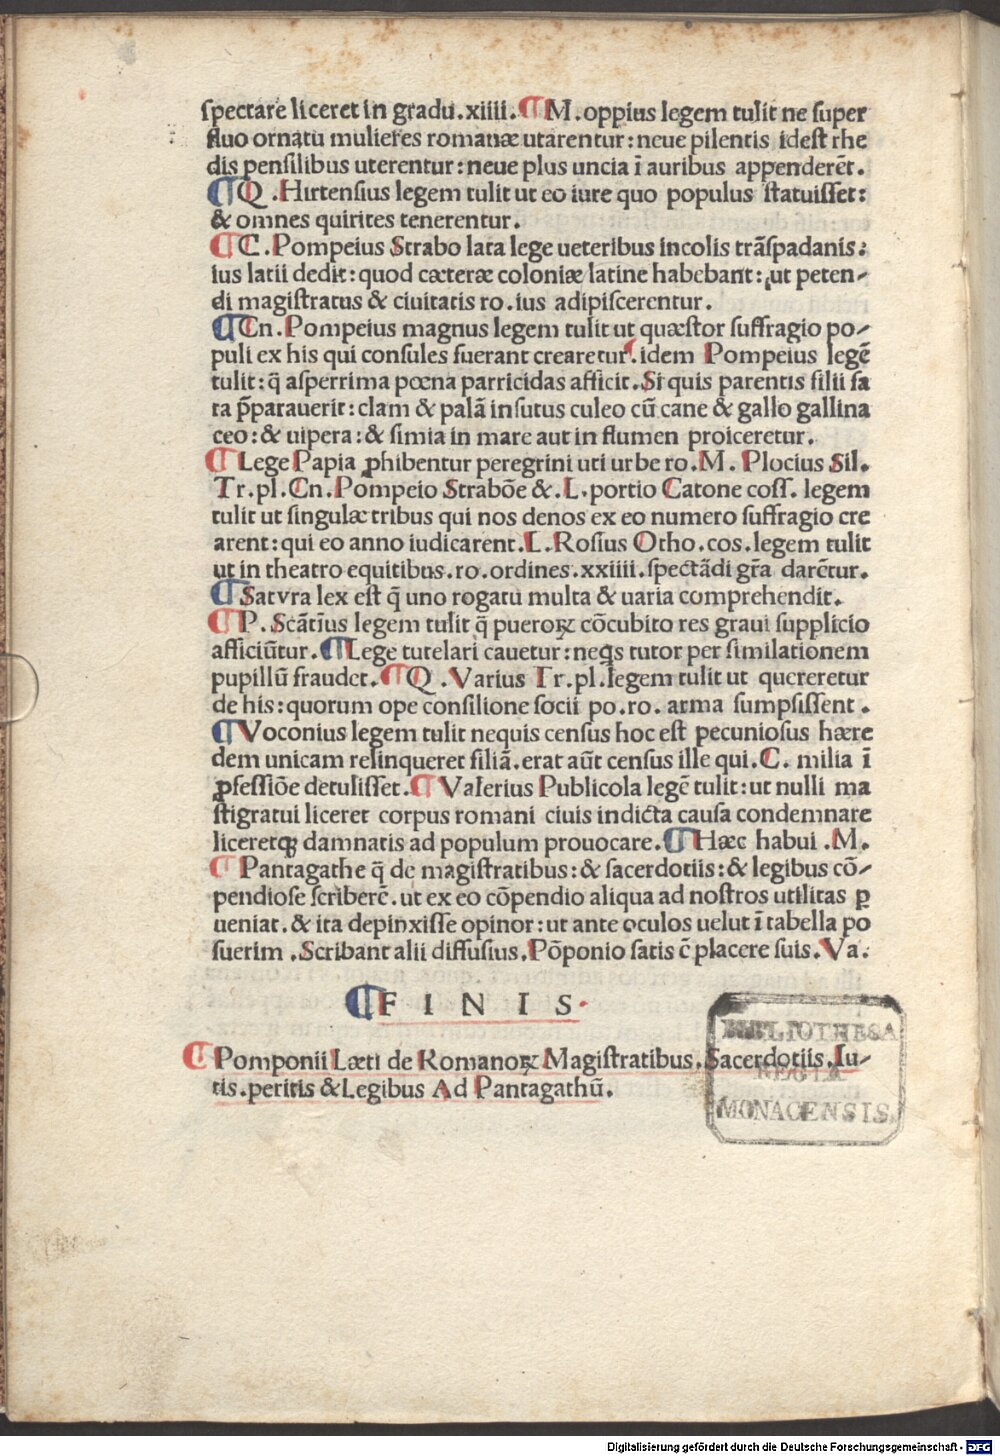 spectare liceret in gradu.xiiii.¶M.oppius legem tulit ne super
fluo ornatu mulieres romanæ utarentur:neue pilentis idest rhe
dis pensilibus uterentur:neue plus uncia ī auribus appenderēt.
¶Q.Hirtensius legem tulit ut eo iure quo populus statuisset:
& omnes quirites tenerentur.
¶C.Pompeius Strabo lata lege ueteribus incolis trāspadanis:
ius latii dedit:quod cæteræ coloniæ latine habebant:ut peten-
di magistratus & ciuitatis ro.ius adipiscerentur.
¶Cn.Pompeius magnus legem tulit ut quæstor suffragio po-
puli ex his qui consules fuerant crearetur.idem Pompeius legē
tulit:q̄ asperrima pœna parricidas afficit.Si quis parentis filii fa
ta p̄parauerit:clam & palā insutus culeo cū cane & gallo gallina
ceo:& uipera:& simia in mare aut in flumen proiceretur.
¶Lege Papia ꝓhibentur peregrini uti urbe ro.M.Plocius Sil.
Tr.pl.Cn.Pompeio Strabōe &.L.portio Catone coss.legem
tulit ut singulæ tribus qui nos denos ex eo numero suffragio cre
arent:qui eo anno iudicarent.L.Rosius Otho.cos.legem tulit
ut in theatro equitibus.ro.ordines.xxiiii.spectādi gr̄a darētur.
¶Satvra lex est q̄ uno rogatu multa & uaria comprehendit.
¶P.Scātius legem tulit q̄ pueroꝝ cōcubito res graui supplicio
afficiūtur.¶Lege tutelari cauetur:neqs tutor per similationem
pupillū fraudet.¶Q.Varius Tr.pl.legem tulit ut quereretur
de his:quorum ope consilione socii po.ro.arma sumpsissent.
¶Voconius legem tulit nequis census hoc est pecuniosus hære
dem unicam relinqueret filiā.erat aūt census ille qui.C.milia ī
ꝓfessiōe detulisset.¶Valerius Publicola legē tulit:ut nulli ma
stigratui liceret corpus romani ciuis indicta causa condemnare
liceretꝙ damnatis ad populum prouocare.¶Hæc habui.M.
¶Pantagathe q̄ de magistratibus:& sacerdotiis:& legibus cō-
pendiose scriberē.ut ex eo cōpendio aliqua ad nostros utilitas ꝑ
ueniat.& ita depinxisse opinor:ut ante oculos uelut ī tabella po
suerim.Scribant alii diffusius.Pōponio satis ē placere suis.Va.
¶FINIS.
¶Pomponii Læti de Romanoꝝ Magistratibus.Sacerdotiis.Iu-
tis.peritis & Legibus Ad Pantagathū.
BIBLIOTHECA
REGIA
MONACENSIS.
Digitalisierung gefördert durch die Deutsche Forschungsgemeinschaft - DFG